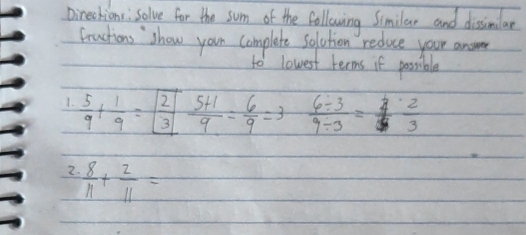 Directions: Solve for the sum of the following Similar and dissimilar
fractions "Show your Complete Solution reduce your answer
to lowest terms if possible
1. 5/9 + 1/9 = 2/3 5+1/9 = 6/9 ÷ 3 6÷3/9÷3 = 2/3
2. 8/11 + 2/11 =